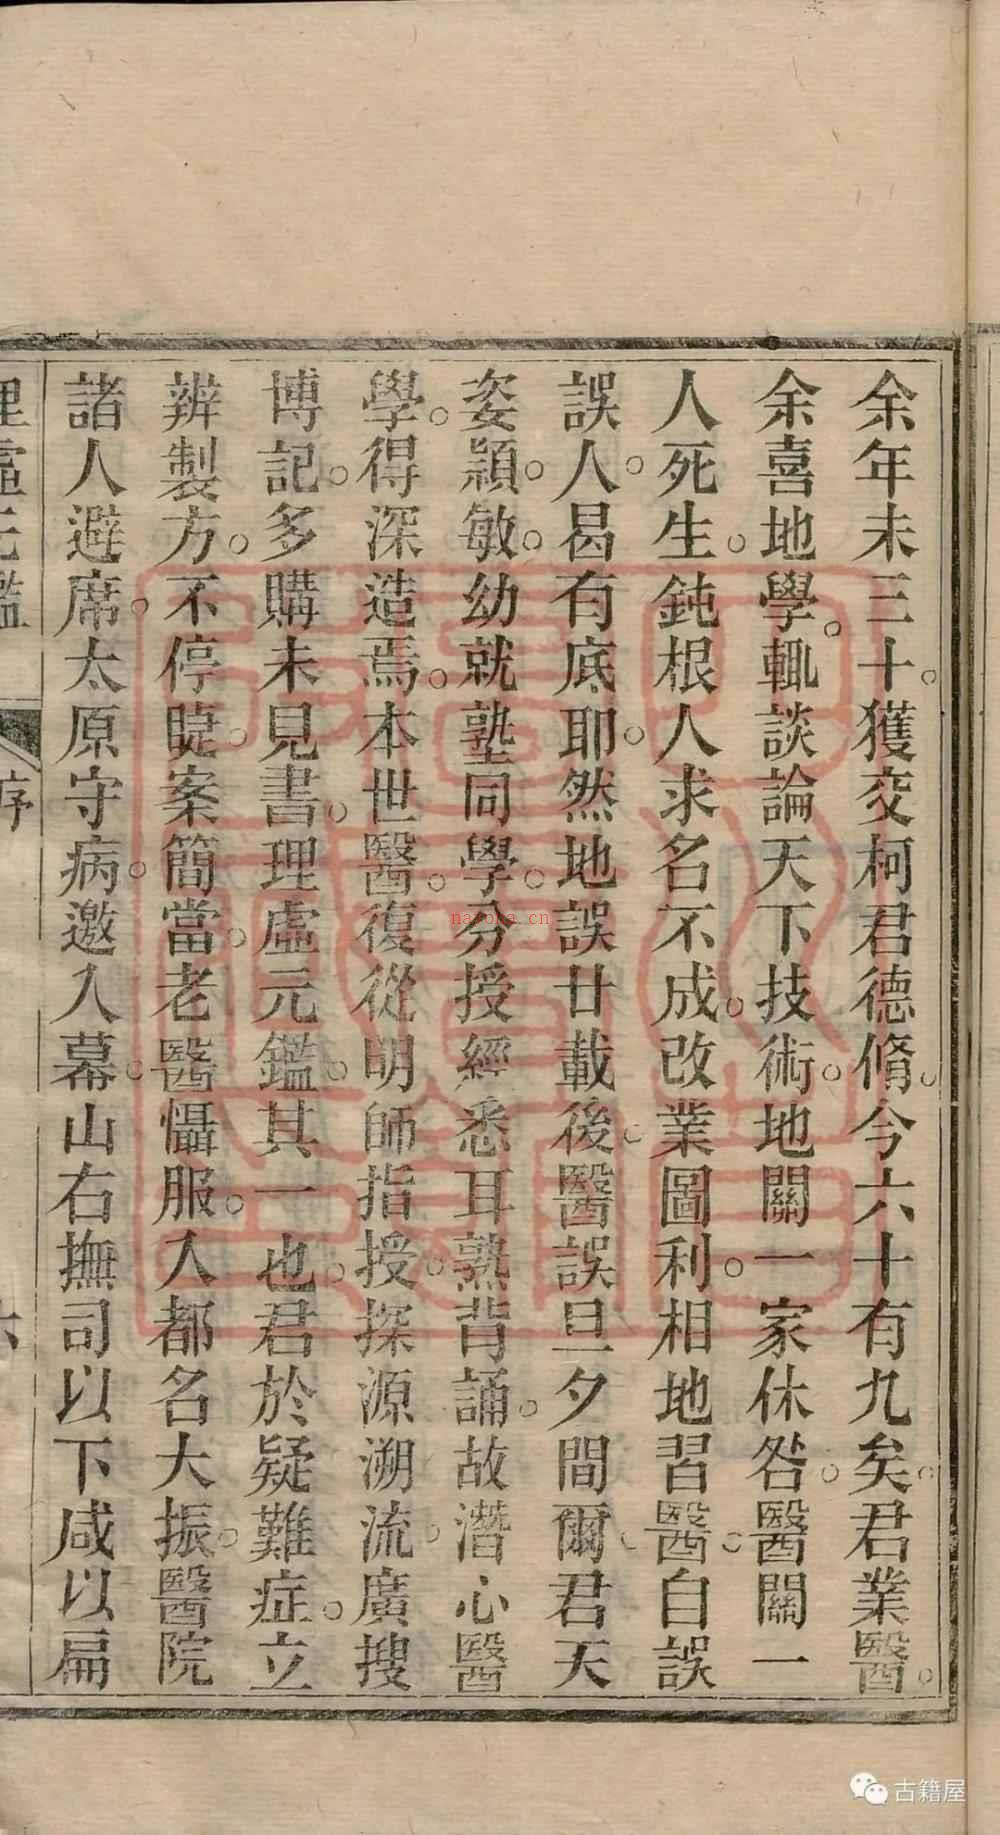 余年未三十。獲交柯君德脩。今六十有九矣。君業醫。
余喜地學。輒談論天下技術。地關一家休咎。醫關一
人死生。鈍根人求名不成。改業圖利。相地習醫。自誤
誤人。曷有底耶。然地誤廿載後。醫誤旦夕間爾。君天
姿穎。敏。幼就塾同學。分授經悉耳熟背誦。故潛心醫
學。得深造焉。本世醫。復從明師指授。探源溯流。廣搜
博記。多購未見書。理虛元鑑。其一也。君於疑難症。立
辨製方。不停晷。案簡當。老醫懾服。入都名大振。醫院
諸人避席。太原守病。邀入幕。山右撫司以下咸以扁
理虛元鑑
序
六
古籍屋